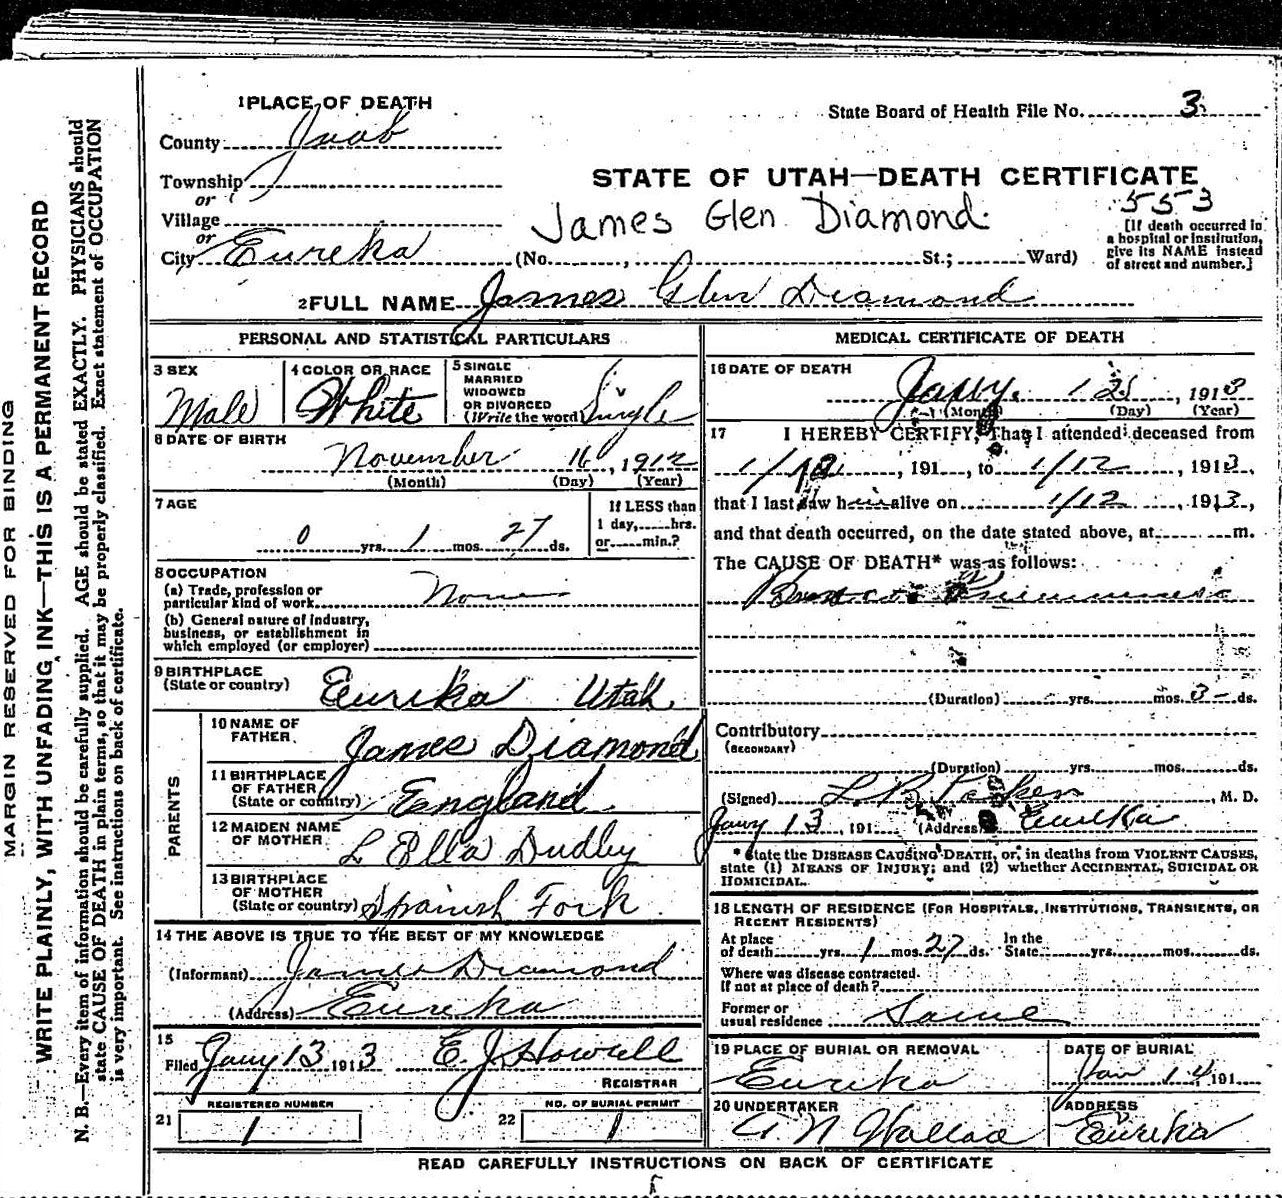 MARGIN RESERVED FOR BINDING
WRITE PLAINLY, WITH UNFADING INK—THIS IS A PERMANENT RECORD
N. B.—Every item of information should be carefully supplied. AGE should be stated EXACTLY. PHYSICIANS should
state CAUSE OF DEATH in plain terms, so that it may be properly classified. Exact statement of OCCUPATION
is very important. See instructions on back of certificate.
1 PLACE OF DEATH
State Board of Health File No. 3
County Juab
Township
or
Village
or
City Eureka
STATE OF UTAH—DEATH CERTIFICATE
553
James Glen Diamond
(No. , St.; Ward)
[If death occurred in
a hospital or institution,
give its NAME instead
of street and number.]
2 FULL NAME James Glen Diamond
PERSONAL AND STATISTICAL PARTICULARS
3 SEX
Male
4 COLOR OR RACE
White
5 SINGLE
MARRIED
WIDOWED
OR DIVORCED
(Write the word) Single
6 DATE OF BIRTH
November 16, 1912
(Month) (Day) (Year)
7 AGE
0 yrs. 1 mos. 27 ds.
If LESS than
1 day, hrs.
or min.?
8 OCCUPATION
(a) Trade, profession or
particular kind of work None
(b) General nature of industry,
business, or establishment in
which employed (or employer)
9 BIRTHPLACE
(State or country) Eureka Utah
PARENTS
10 NAME OF
FATHER James Diamond
11 BIRTHPLACE
OF FATHER
(State or country) England
12 MAIDEN NAME
OF MOTHER L Ella Dudley
13 BIRTHPLACE
OF MOTHER
(State or country) Spanish Fork
14 THE ABOVE IS TRUE TO THE BEST OF MY KNOWLEDGE
(Informant) James Diamond
(Address) Eureka
15
Filed Jany 13 1913 E. J. Howell
REGISTRAR
21 REGISTERED NUMBER
1
22 NO. OF BURIAL PERMIT
1
MEDICAL CERTIFICATE OF DEATH
16 DATE OF DEATH
Jany. , 1913
(Month) (Day) (Year)
17 I HEREBY CERTIFY, That I attended deceased from
, 191 , to 1/12 , 1913,
that I last saw him alive on 1/12 , 1913,
and that death occurred, on the date stated above, at m.
The CAUSE OF DEATH* was as follows:
(Duration) yrs. mos. 3 ds.
Contributory
(SECONDARY)
(Duration) yrs. mos. ds.
(Signed) L. B. , M. D.
Jany 13, 191 (Address) Eureka
* State the DISEASE CAUSING DEATH, or, in deaths from VIOLENT CAUSES,
state (1) MEANS OF INJURY; and (2) whether ACCIDENTAL, SUICIDAL OR
HOMICIDAL.
18 LENGTH OF RESIDENCE (FOR HOSPITALS, INSTITUTIONS, TRANSIENTS, OR
RECENT RESIDENTS)
At place
of death yrs. 1 mos. 27 ds. In the
State yrs. mos. ds.
Where was disease contracted
If not at place of death?
Former or
usual residence Same
19 PLACE OF BURIAL OR REMOVAL
Eureka
DATE OF BURIAL
Jan 14 191
20 UNDERTAKER
A N Wallace
ADDRESS
Eureka
READ CAREFULLY INSTRUCTIONS ON BACK OF CERTIFICATE